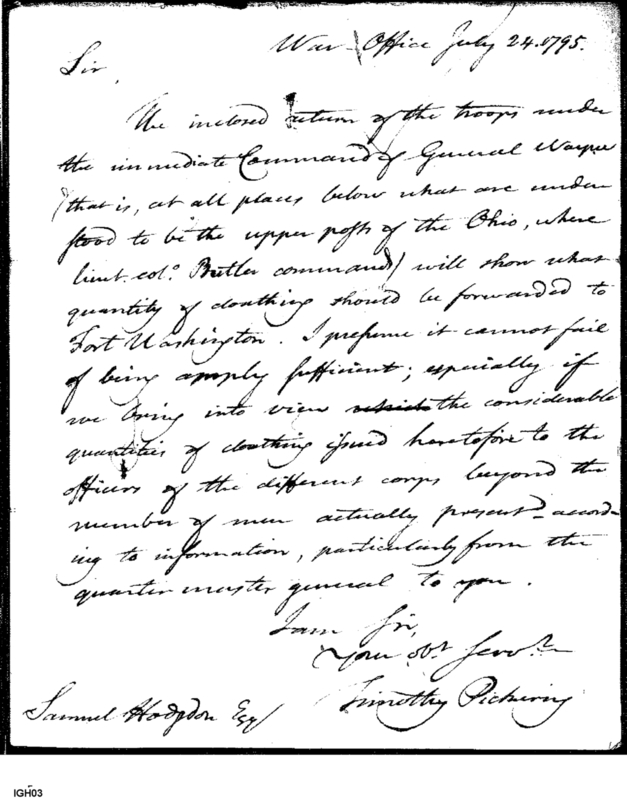 War Office July 24. 1795.
Sir,
The inclosed return of the troops under
the immediate Command of General Wayne
(that is, at all places below what are under
stood to be the upper posts of the Ohio, where
lieut. colo. Butler commands) will show what
quantity of cloathing should be forwarded to
Fort Washington. I presume it cannot fail
of being amply sufficient; especially if
we bring into view which the considerable
quantities of cloathing issued heretofore to the
officers of the different corps beyond the
number of men actually present - accord-
ing to information, particularly from the
quarter master general to you.
I am Sir,
Your obt. servt.
Timothy Pickering
Samuel Hodgdon Esq
IGH03